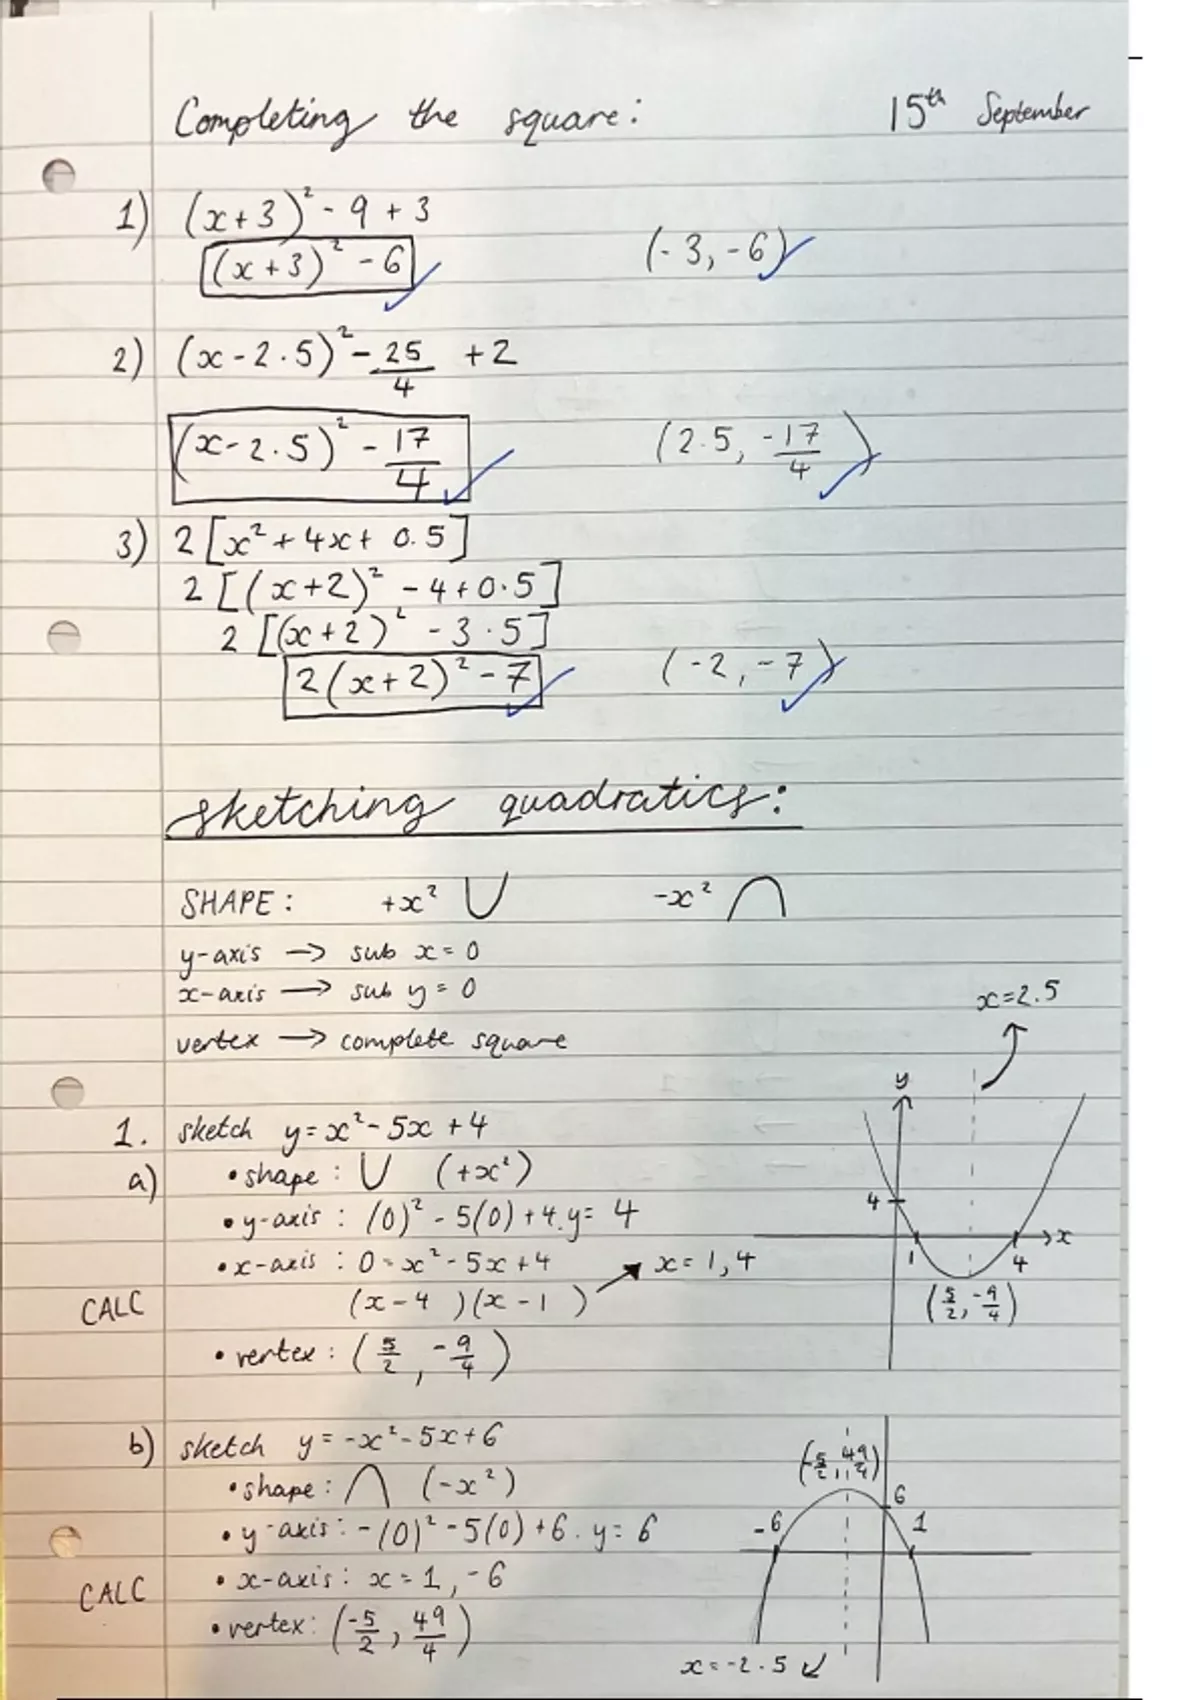 Completing the square: 15th September
1) (x+3)² - 9 + 3
(x+3)² - 6 (-3, -6)
2) (x-2.5)² - 25/4 + 2
(x-2.5)² - 17/4 (2.5, -17/4)
3) 2[x² + 4x + 0.5]
2[(x+2)² - 4 + 0.5]
2[(x+2)² - 3.5]
2(x+2)² - 7 (-2, -7)
sketching quadratics:
SHAPE: +x² ∪ -x² ∩
y-axis → sub x = 0
x-axis → sub y = 0
vertex → complete square
1. sketch y = x² - 5x + 4
a) • shape: ∪ (+x²)
• y-axis: (0)² - 5(0) + 4. y = 4
• x-axis: 0 = x² - 5x + 4 → x = 1, 4
CALC (x-4)(x-1)
• vertex: (5/2, -9/4)
x = 2.5
y
4
1
4
x
(5/2, -9/4)
b) sketch y = -x² - 5x + 6
• shape: ∩ (-x²)
• y-axis: -(0)² - 5(0) + 6. y = 6
• x-axis: x = 1, -6
CALC
• vertex: (-5/2, 49/4)
(-5/2, 49/4)
6
-6
1
x = -2.5